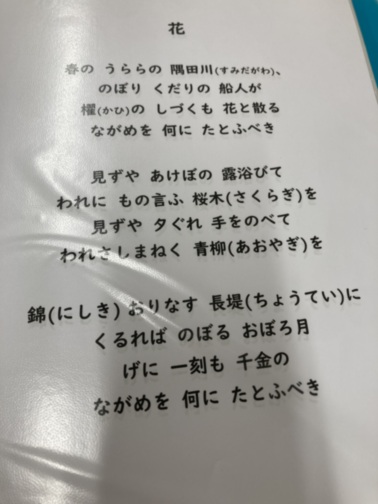 花
春の うららの 隅田川(すみだがわ)、
のぼり くだりの 船人が
櫂(かひ)の しづくも 花と散る
ながめを 何に たとふべき
見ずや あけぼの 露浴びて
われに もの言ふ 桜木(さくらぎ)を
見ずや 夕ぐれ 手をのべて
われさしまねく 青柳(あおやぎ)を
錦(にしき) おりなす 長堤(ちょうてい)に
くるれば のぼる おぼろ月
げに 一刻も 千金の
ながめを 何に たとふべき